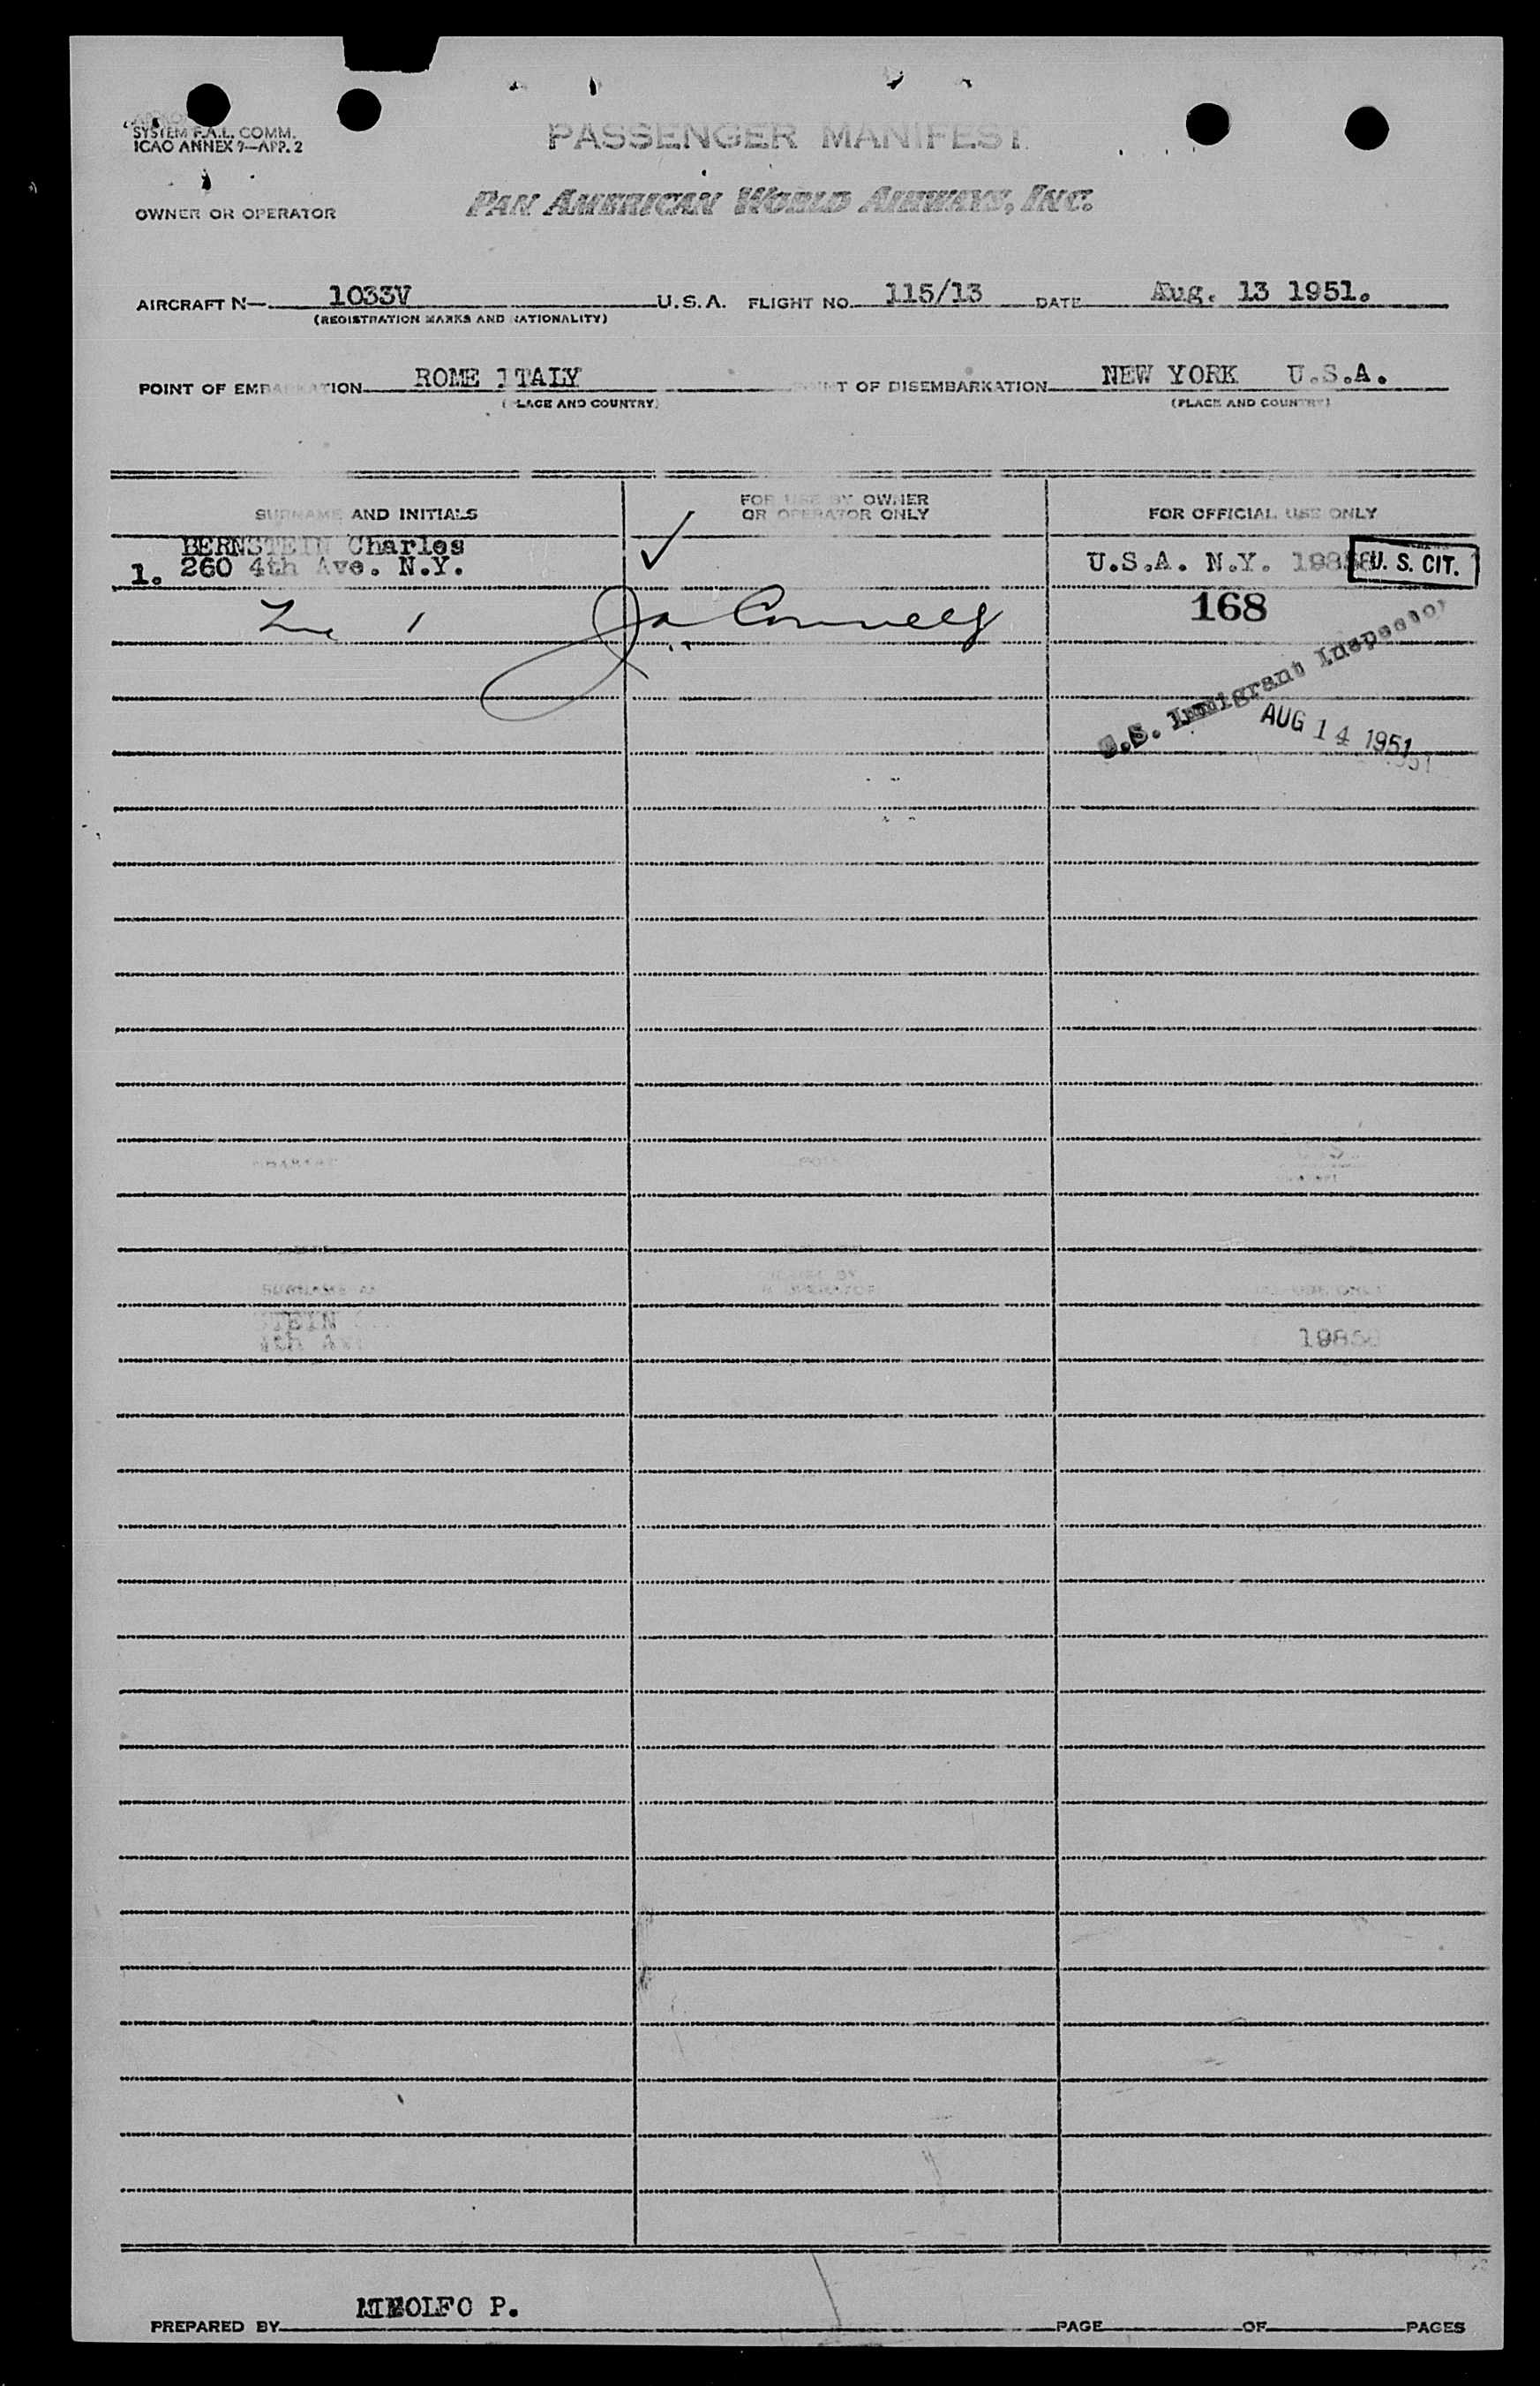 SYSTEM F.A.L. COMM.
ICAO ANNEX 9—APP. 2
PASSENGER MANIFEST
OWNER OR OPERATOR
PAN AMERICAN WORLD AIRWAYS, INC.
AIRCRAFT N— 1033V U.S.A. FLIGHT NO. 115/13 DATE Aug. 13 1951.
(REGISTRATION MARKS AND NATIONALITY)
POINT OF EMBARKATION ROME ITALY POINT OF DISEMBARKATION NEW YORK U.S.A.
(PLACE AND COUNTRY) (PLACE AND COUNTRY)
SURNAME AND INITIALS
FOR USE BY OWNER
OR OPERATOR ONLY
FOR OFFICIAL USE ONLY
BERNSTEIN Charles
1. 260 4th Ave. N.Y. ✓ U.S.A. N.Y. 19858 U. S. CIT.
168
U.S. Immigrant Inspector
AUG 14 1951
SURNAME A
TEIN
4th Av
USE ONLY
1985
PREPARED BY P.
PAGE OF PAGES